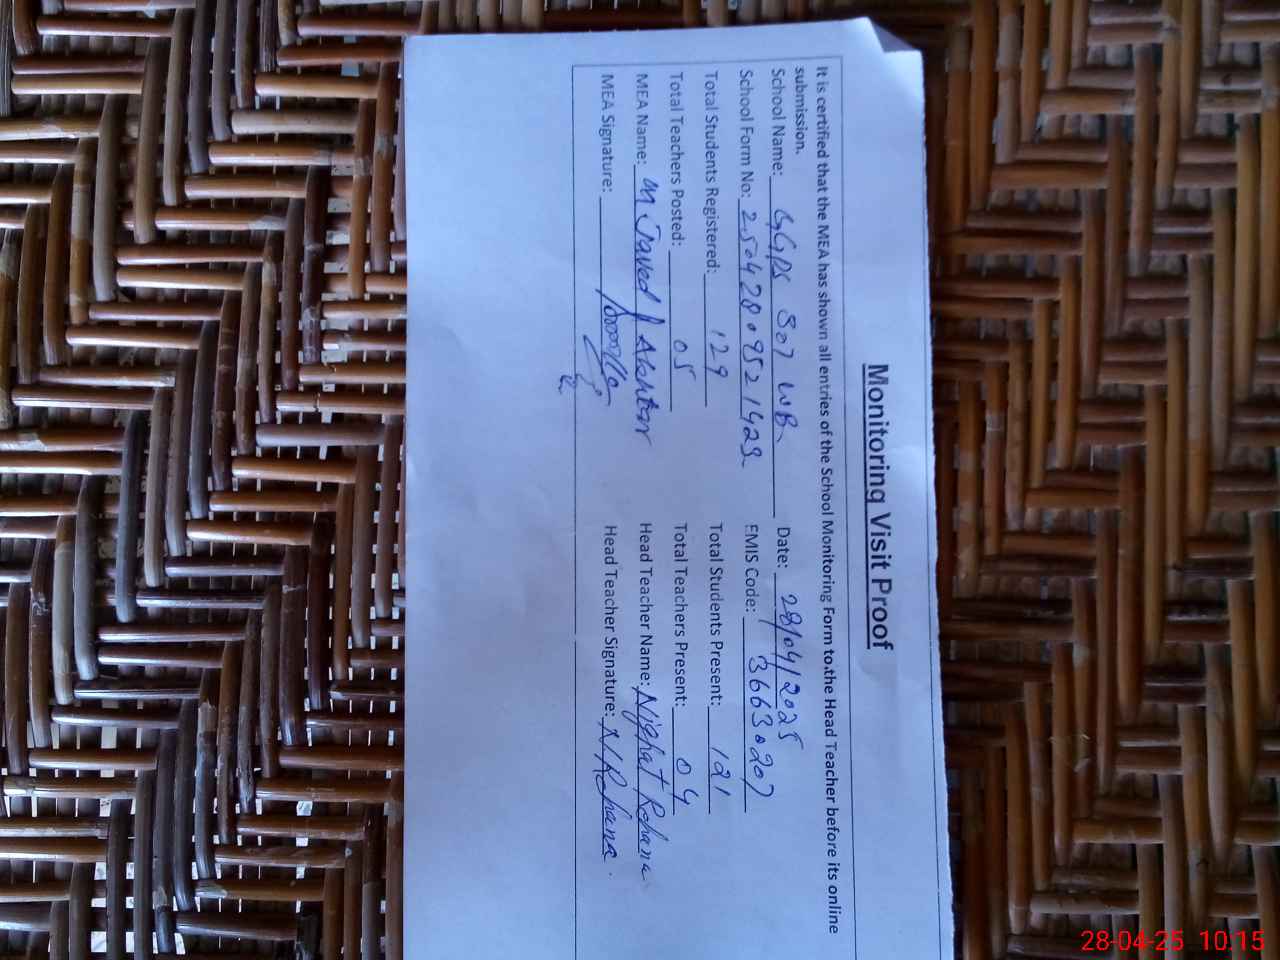 Monitoring Visit Proof
It is certified that the MEA has shown all entries of the School Monitoring Form to the Head Teacher before its online
submission.
School Name: GGPS 307 WB Date: 28/04/2025
School Form No: 25042809521423 EMIS Code: 36630207
Total Students Registered: 129 Total Students Present: 121
Total Teachers Posted: 05 Total Teachers Present: 04
MEA Name: M Javed Akhter Head Teacher Name: Nighat Rehana
MEA Signature: Head Teacher Signature: N/Rehana.
28-04-25 10:15